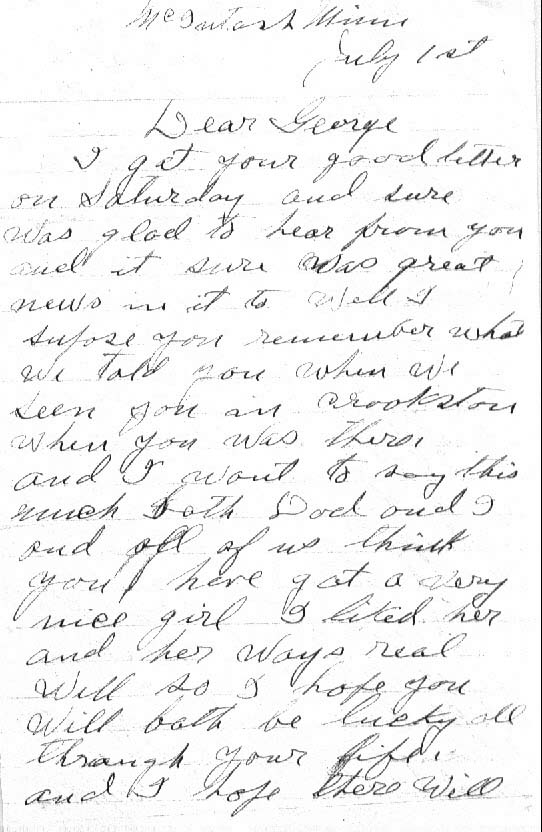 McIntosh Minn
July 1st
Dear George
I got your good letter
on Saturday and sure
was glad to hear from you
and it sure was great
news in it to Well I
supose you remember what
we told you when we
seen you in Crookston
when you was there
and I want to say this
much both Dad and I
and all of us think
you have got a very
nice girl I liked her
and her ways real
well so I hope you
will both be lucky all
through your life
and I hope there will